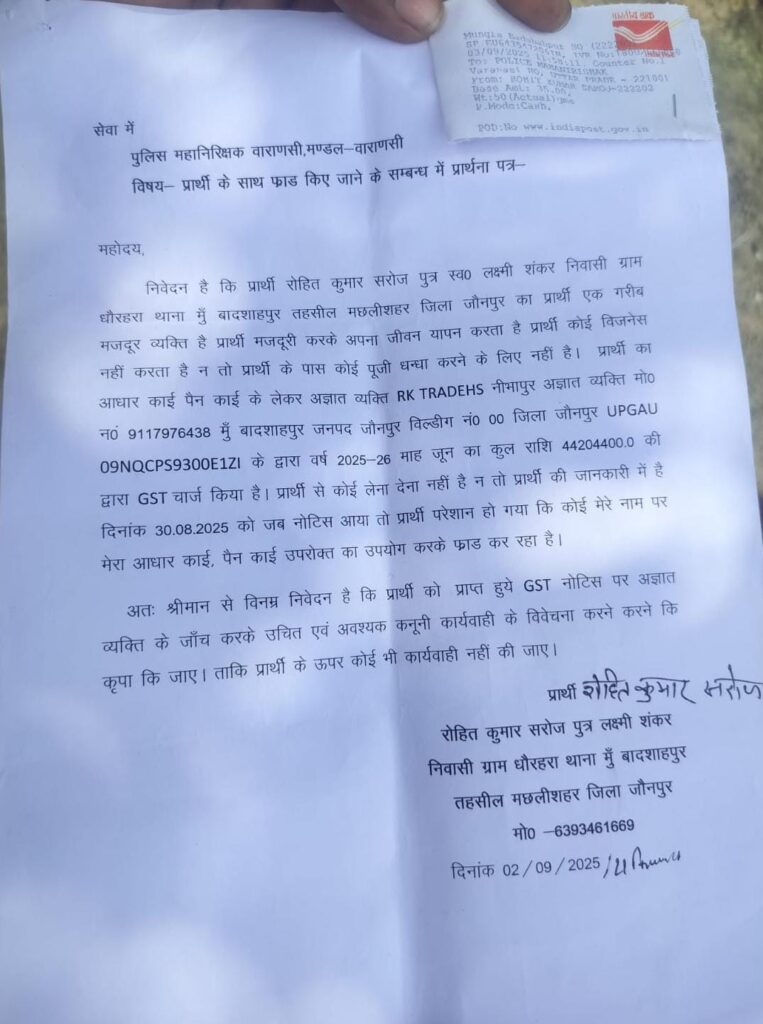 भारतीय डाक
Mungra Badshahpur SO (2222
03/09/2025 11:58:11, Counter No.1
To: POLICE MAHANIRIKSHAK
Varanasi HO, UTTAR PRADE - 221001
From: ROHIT KUMAR SAROJ-222202
Base Amt: 35.00,
Wt:50(Actual)gms
P.Mode:Cash,
POD:No www.indiapost.gov.in
सेवा में
पुलिस महानिरिक्षक वाराणसी,मण्डल–वाराणसी
विषय– प्रार्थी के साथ फ्राड किए जाने के सम्बन्ध में प्रार्थना पत्र–
महोदय,
निवेदन है कि प्रार्थी रोहित कुमार सरोज पुत्र स्व0 लक्ष्मी शंकर निवासी ग्राम
धौरहरा थाना मुँ बादशाहपुर तहसील मछलीशहर जिला जौनपुर का प्रार्थी एक गरीब
मजदूर व्यक्ति है प्रार्थी मजदूरी करके अपना जीवन यापन करता है प्रार्थी कोई विजनेस
नहीं करता है न तो प्रार्थी के पास कोई पूजी धन्धा करने के लिए नहीं है। प्रार्थी का
आधार काई पैन काई के लेकर अज्ञात व्यक्ति RK TRADEHS नीभापुर अज्ञात व्यक्ति मो0
न0 9117976438 मुँ बादशाहपुर जनपद जौनपुर विल्डीग नं0 00 जिला जौनपुर UPGAU
09NQCPS9300E1ZI के द्वारा वर्ष 2025–26 माह जून का कुल राशि 44204400.0 की
द्वारा GST चार्ज किया है। प्रार्थी से कोई लेना देना नहीं है न तो प्रार्थी की जानकारी में है
दिनांक 30.08.2025 को जब नोटिस आया तो प्रार्थी परेशान हो गया कि कोई मेरे नाम पर
मेरा आधार काई, पैन काई उपरोक्त का उपयोग करके फ्राड कर रहा है।
अतः श्रीमान से विनम्र निवेदन है कि प्रार्थी को प्राप्त हुये GST नोटिस पर अज्ञात
व्यक्ति के जाँच करके उचित एवं अवश्यक कनूनी कार्यवाही के विवेचना करने करने कि
कृपा कि जाए। ताकि प्रार्थी के ऊपर कोई भी कार्यवाही नहीं की जाए।
प्रार्थी रोहित कुमार सरोज
रोहित कुमार सरोज पुत्र लक्ष्मी शंकर
निवासी ग्राम धौरहरा थाना मुँ बादशाहपुर
तहसील मछलीशहर जिला जौनपुर
मो0 –6393461669
दिनांक 02/09/2025